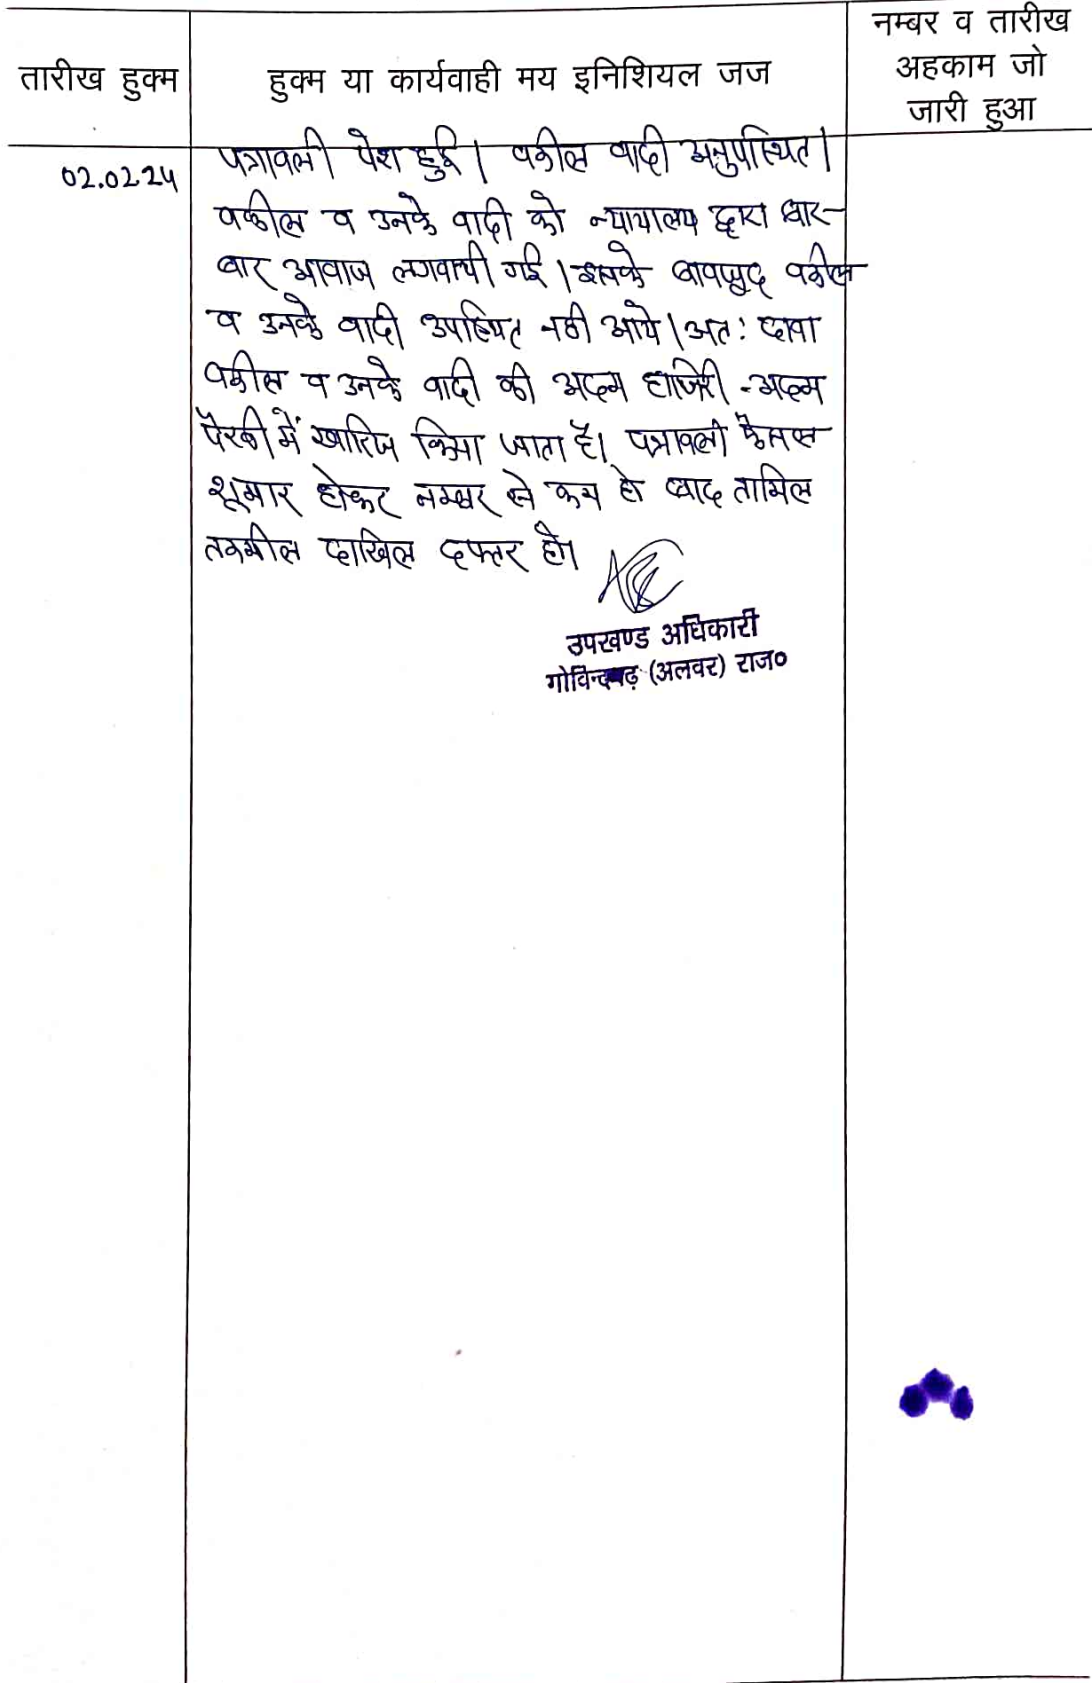 तारीख हुक्म
हुक्म या कार्यवाही मय इनिशियल जज
नम्बर व तारीख
अहकाम जो
जारी हुआ
02.02.24
पत्रावली पेश हुई। वकील वादी अनुपस्थित।
वकील व उनके वादी को न्यायालय द्वारा बार-
बार आवाज लगवायी गई। इसके बावजूद वकील
व उनके वादी उपस्थित नही आये। अत: दावा
वकील व उनके वादी की अदम हाजिरी -अदम
पैरवी में खारिज किया जाता है। पत्रावली फैसल
शूमार होकर नम्बर से कम हो बाद तामिल
तकमील दाखिल दफ्तर हो।
उपखण्ड अधिकारी
गोविन्दगढ़ (अलवर) राज०